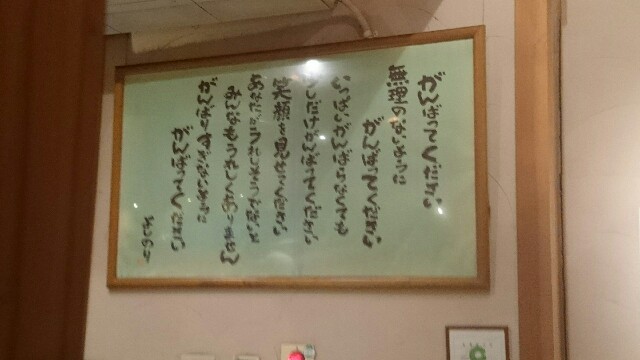 がんばってください
無理のないように
がんばってください
いっぱいがんばらなくても
少しだけがんばってください
笑顔を見せてください
あなたがうれしそうでないと
みんなもうれしくありません
がんばりすぎないように
がんばってください